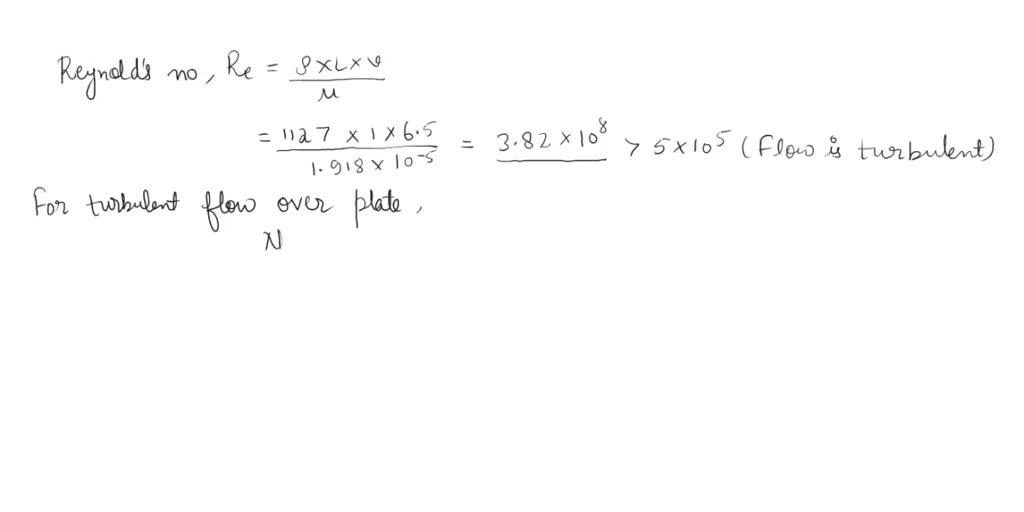 Reynold's no, Re = ρ×L×v / μ
= 1127 × 1 × 6.5 / 1.918 × 10-5 = 3.82 × 10^8 > 5×10^5 (Flow is turbulent)
For turbulent flow over plate,
N